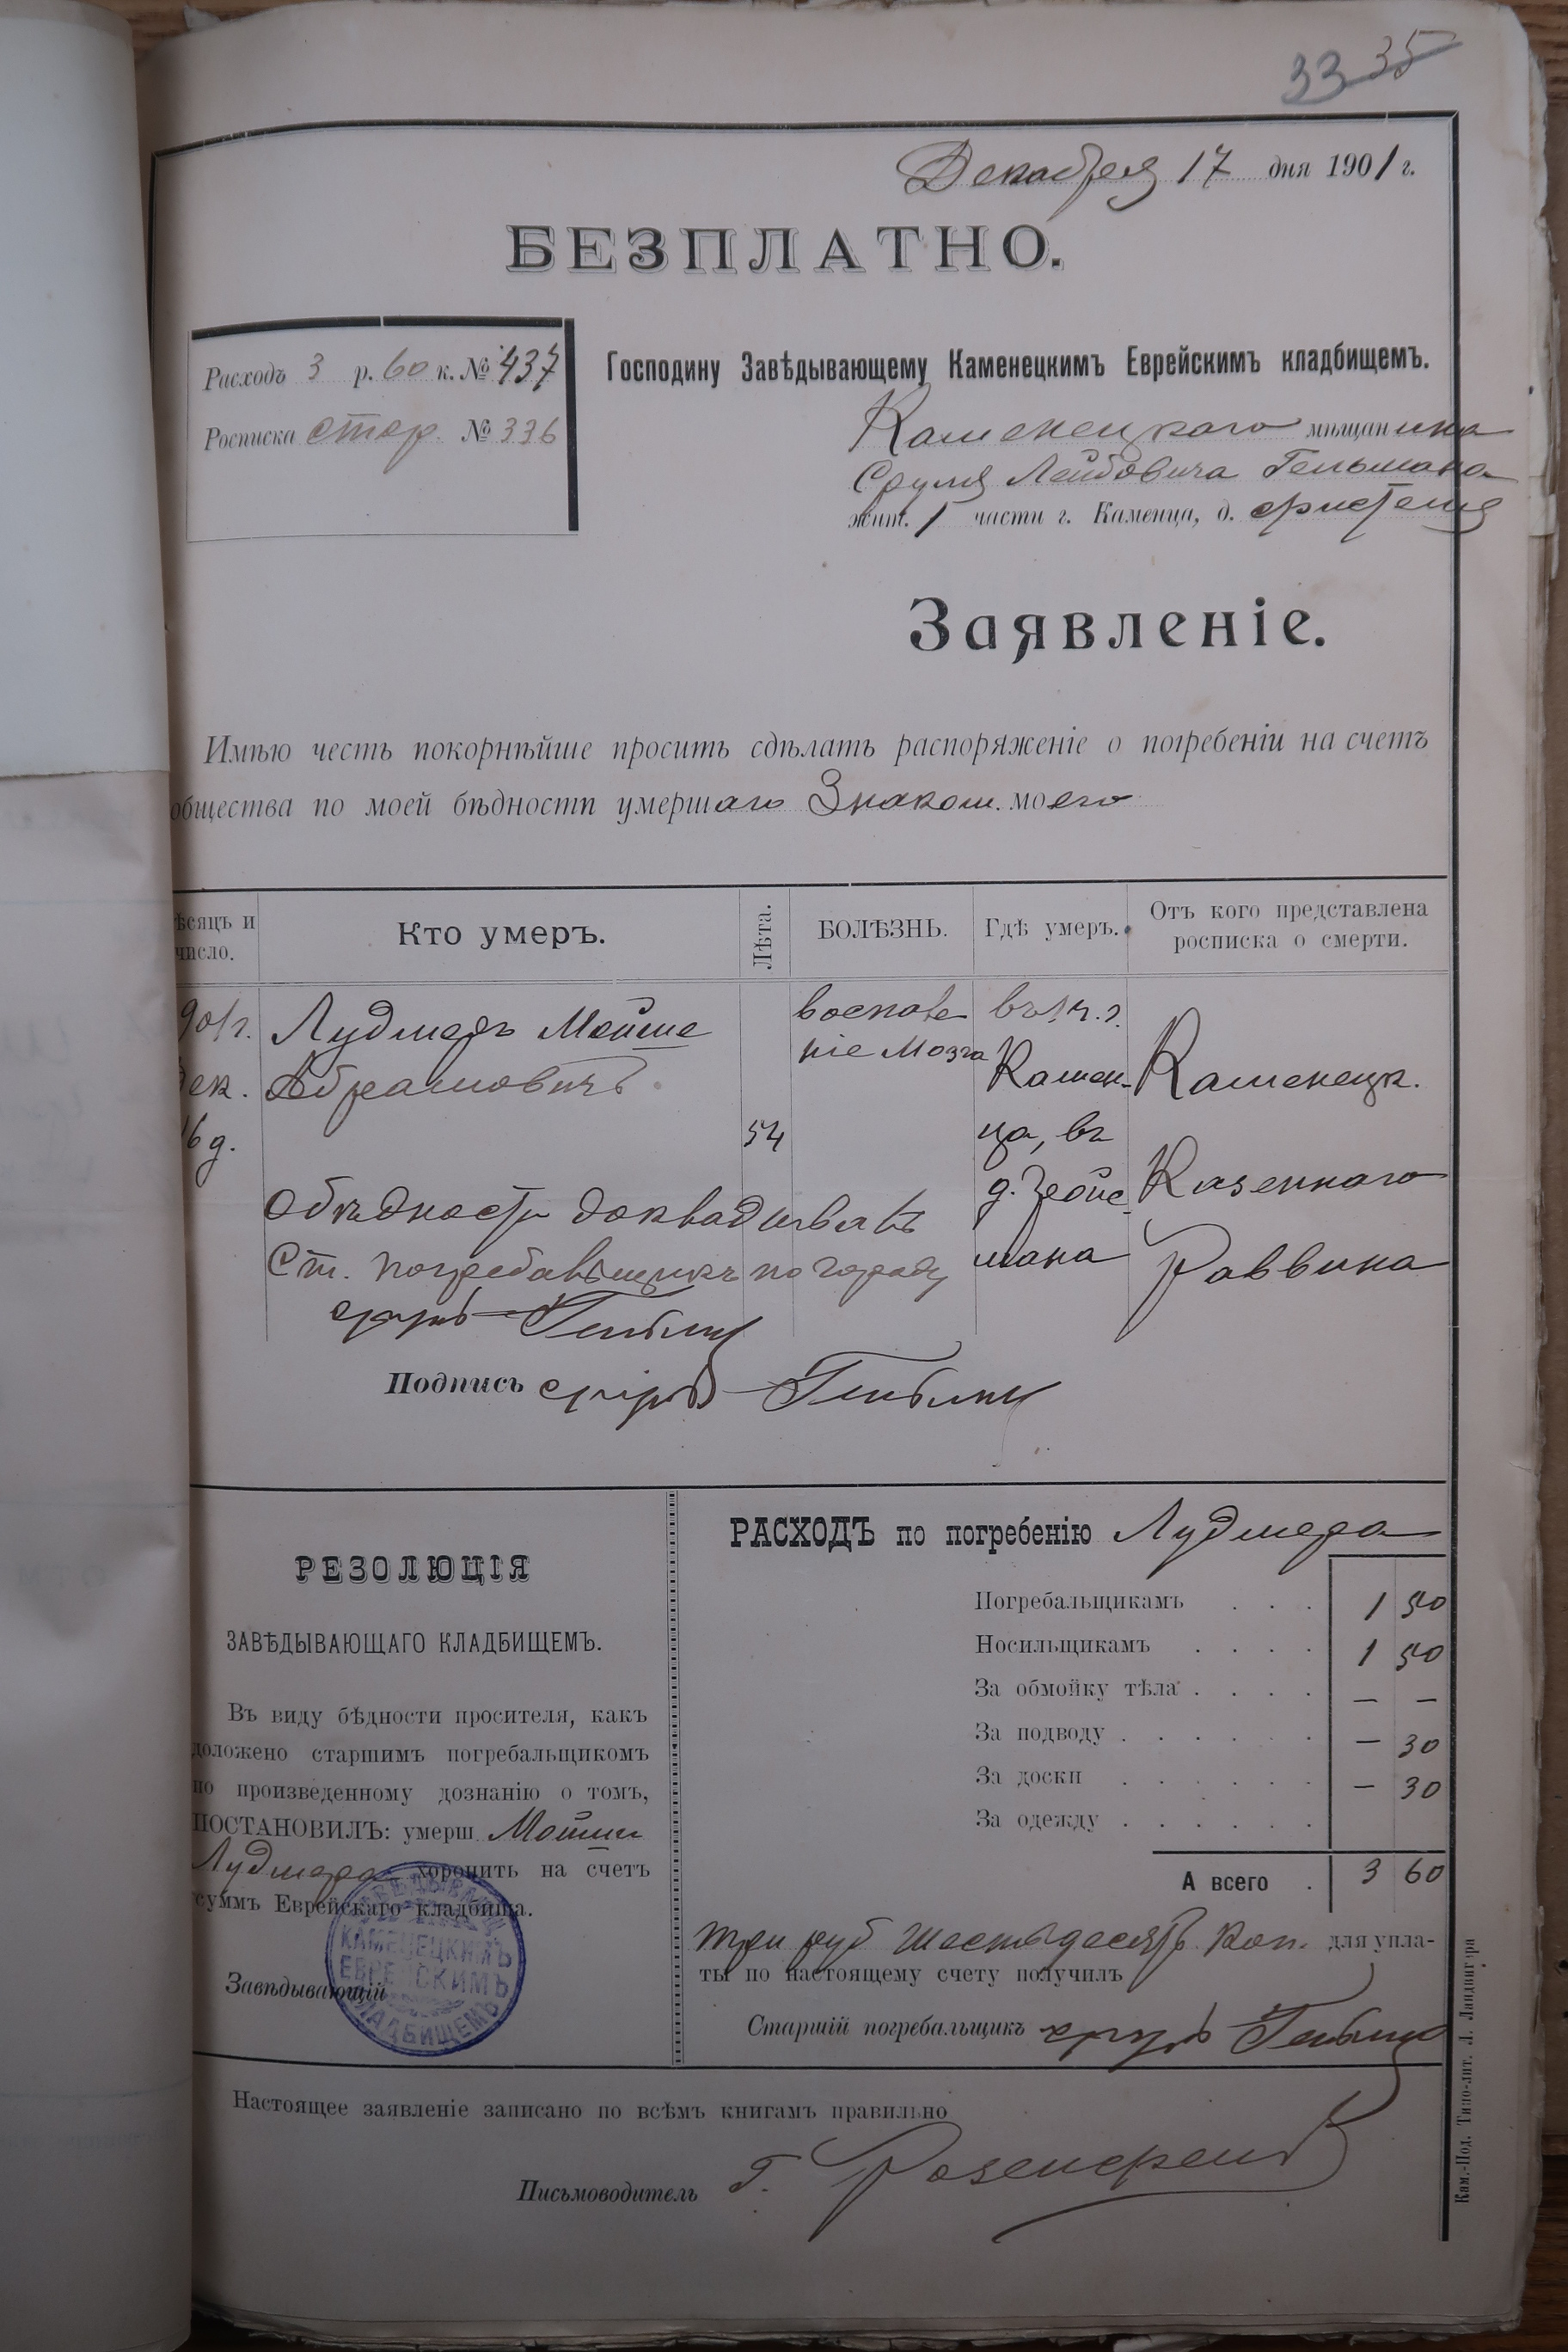 33 35
Декабря 17 дня 1901 г.
БЕЗПЛАТНО.
Расходъ 3 р. 60 к. № 437
Росписка стор. № 336
Господину Завѣдывающему Каменецкимъ Еврейскимъ кладбищемъ.
Каменецкаго мѣщанина
Сруля Лейбовича Гельмана
жит. 1 части г. Каменца, д.
Заявленіе.
Имѣю честь покорнѣйше просить сдѣлать распоряженіе о погребеніи на счетъ
общества по моей бѣдности умершаго Знаком. моего
ѣсяцъ и число.
Кто умеръ.
Лѣта.
БОЛѢЗНЬ.
Гдѣ умеръ.
Отъ кого представлена росписка о смерти.
901г.
дек.
16 д.
Лудмеръ Мойше
Абрамовичъ
54
воспале
ніе мозга
въ 1 ч. г.
Камен-
ца, въ
д. Зейс-
мана
Каменецк.
Казеннаго
Раввина
О бѣдности докладываетъ
Ст. погребальщикъ по городу
Подпись
РЕЗОЛЮЦІЯ
ЗАВѢДЫВАЮЩАГО КЛАДБИЩЕМЪ.
Въ виду бѣдности просителя, какъ
доложено старшимъ погребальщикомъ
по произведенному дознанію о томъ,
ПОСТАНОВИЛЪ: умерш Мойши
Лудмера хоронить на счетъ
суммъ Еврейскаго кладбища.
Завѣдывающій
ЗАВѢДЫВАЮЩІЙ КАМЕНЕЦКИМЪ ЕВРЕЙСКИМЪ КЛАДБИЩЕМЪ
РАСХОДЪ по погребенію Лудмера
Погребальщикамъ . . . 1 50
Носильщикамъ . . . . 1 50
За обмойку тѣла . . . . — —
За подводу . . . . . — 30
За доски . . . . . . — 30
За одежду . . . . . .
А всего . 3 60
три руб шестьдесятъ коп. для упла-
ты по настоящему счету получилъ
Старшій погребальщикъ
Настоящее заявленіе записано по всѣмъ книгамъ правильно
Письмоводитель Г.
Кам.-Под. Типо-лит. Л. Ландвигера